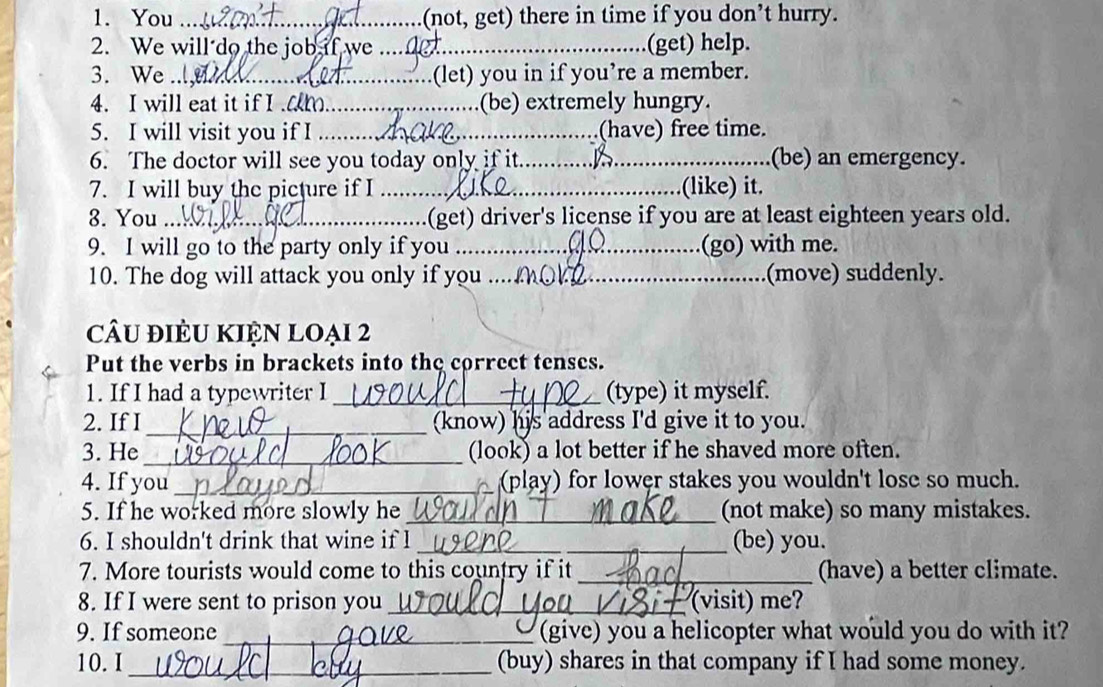 1. You ....won't.......get..........(not, get) there in time if you don't hurry.
2. We will do the job if we ....get..............................(get) help.
3. We ..will..........let............(let) you in if you're a member.
4. I will eat it if I .am.......................(be) extremely hungry.
5. I will visit you if I ..........have.....................(have) free time.
6. The doctor will see you today only if it...........is........................(be) an emergency.
7. I will buy the picture if I ..........like..........................(like) it.
8. You ......will..get...................(get) driver's license if you are at least eighteen years old.
9. I will go to the party only if you .................go...............(go) with me.
10. The dog will attack you only if you ....move...........................(move) suddenly.
CÂU ĐIỀU KIỆN LOẠI 2
Put the verbs in brackets into the correct tenses.
1. If I had a typewriter I would type (type) it myself.
2. If I knew (know) his address I'd give it to you.
3. He would look (look) a lot better if he shaved more often.
4. If you played (play) for lower stakes you wouldn't lose so much.
5. If he worked more slowly he wouldn't make (not make) so many mistakes.
6. I shouldn't drink that wine if I were (be) you.
7. More tourists would come to this country if it had (have) a better climate.
8. If I were sent to prison you would you visit (visit) me?
9. If someone gave (give) you a helicopter what would you do with it?
10. I would buy (buy) shares in that company if I had some money.